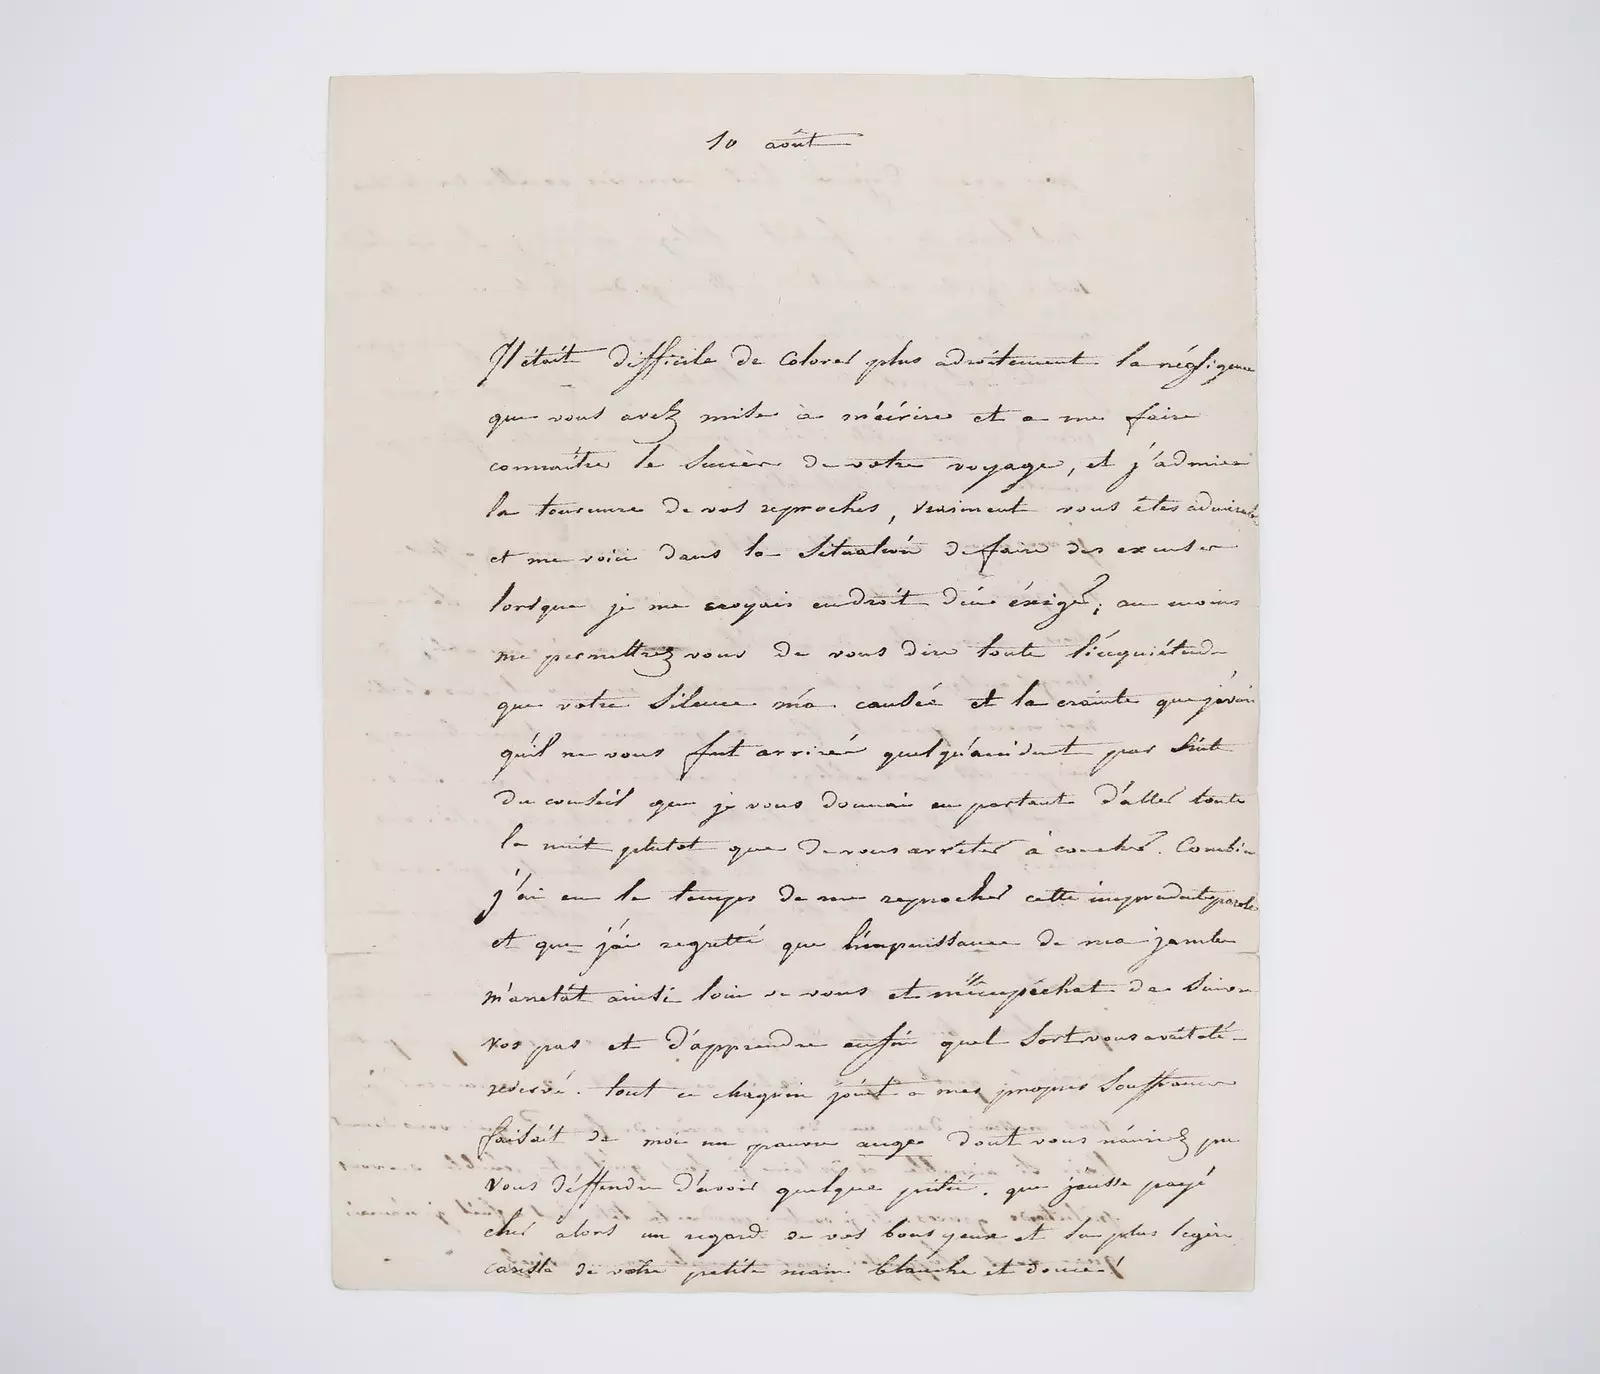 10 août
Il était difficile de colorer plus adroitement la négligence
que vous avez mise à m'écrire et a me faire
connaître le succès de votre voyage, et j'admire
la tournure de vos reproches, vraiment vous êtes admirable
et me voici dans la situation de faire des excuses
lorsque je me croyais en droit d'en éxiger; au moins
me permettrez vous de vous dire toute l'inquiétude
que votre silence m'a causée et la crainte que j'avais
qu'il ne vous fut arrivé quelqu'accident par suite
du conseil que je vous donnai en partant d'aller toute
la nuit plutot que de vous arrêter à coucher. Combien
j'ai eu le temps de me reprocher cette imprudente parole
et que j'ai regretté que l'impuissance de ma jambe
m'arretât ainsi loin de vous et m'empéchat de suivre
vos pas et d'apprendre enfin quel sort vous avait été
reservé. tout ce chagrin joint a mes propres souffrances
faisait de moi un pauvre ange dont vous n'auriez pu
vous déffendre d'avoir quelque pitié. que j'eusse payé
cher alors un regard de vos bons yeux et la plus legère
caresse de votre petite main blanche et douce!